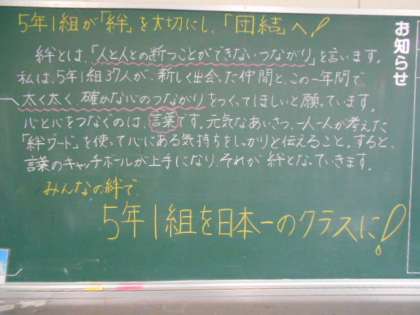 5年1組が「絆」を大切にし、「団結」へ!
お知らせ
絆とは、「人と人との断つことができないつながり」を言います。
私は、5年1組37人が、新しく出会った仲間と、この一年間で
太く太く 確かな心のつながりをつくってほしいと願っています。
心と心をつなぐのは、言葉です。元気なあいさつ、一人一人が考えた
「絆ワード」を使って心にある気持ちをしっかりと伝えること。すると、
言葉のキャッチボールが上手になり、それが絆となっていきます。
みんなの絆で、
5年1組を日本一のクラスに!